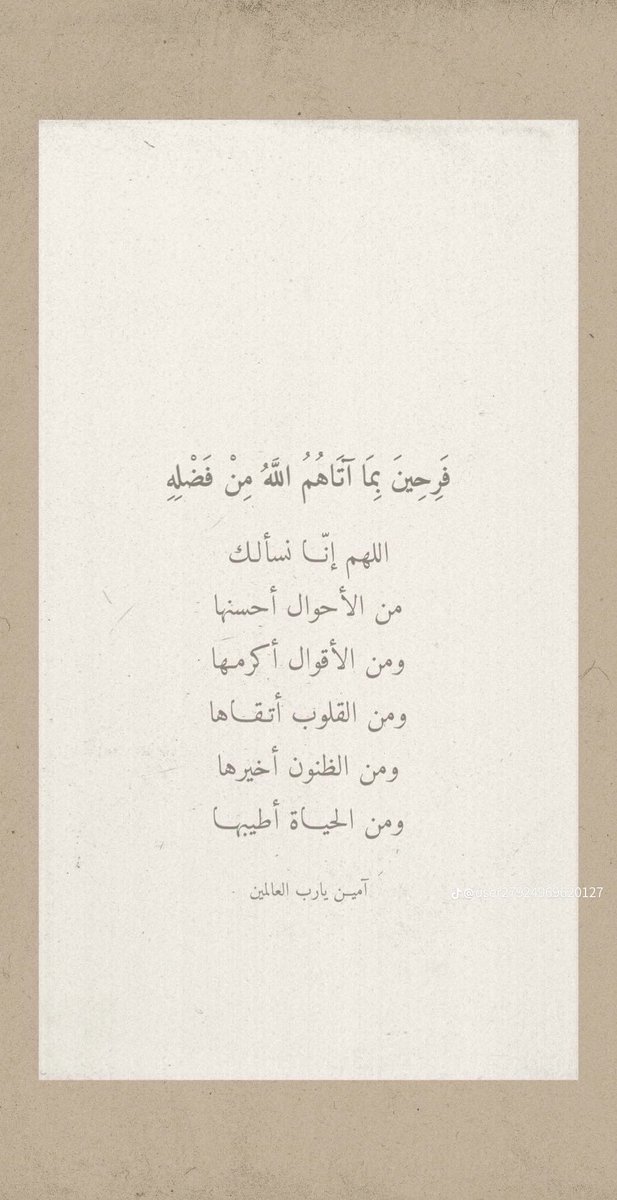 فَرِحِينَ بِمَا آتَاهُمُ اللَّهُ مِنْ فَضْلِهِ
اللهم إنّــا نسألك
من الأحوال أحسنها
ومن الأقوال أكرمـها
ومن القلوب أتـقــاها
ومن الظنون أخيرها
ومن الحيــاة أطيبهــا
آميــن يارب العالمين
@user27924969620127